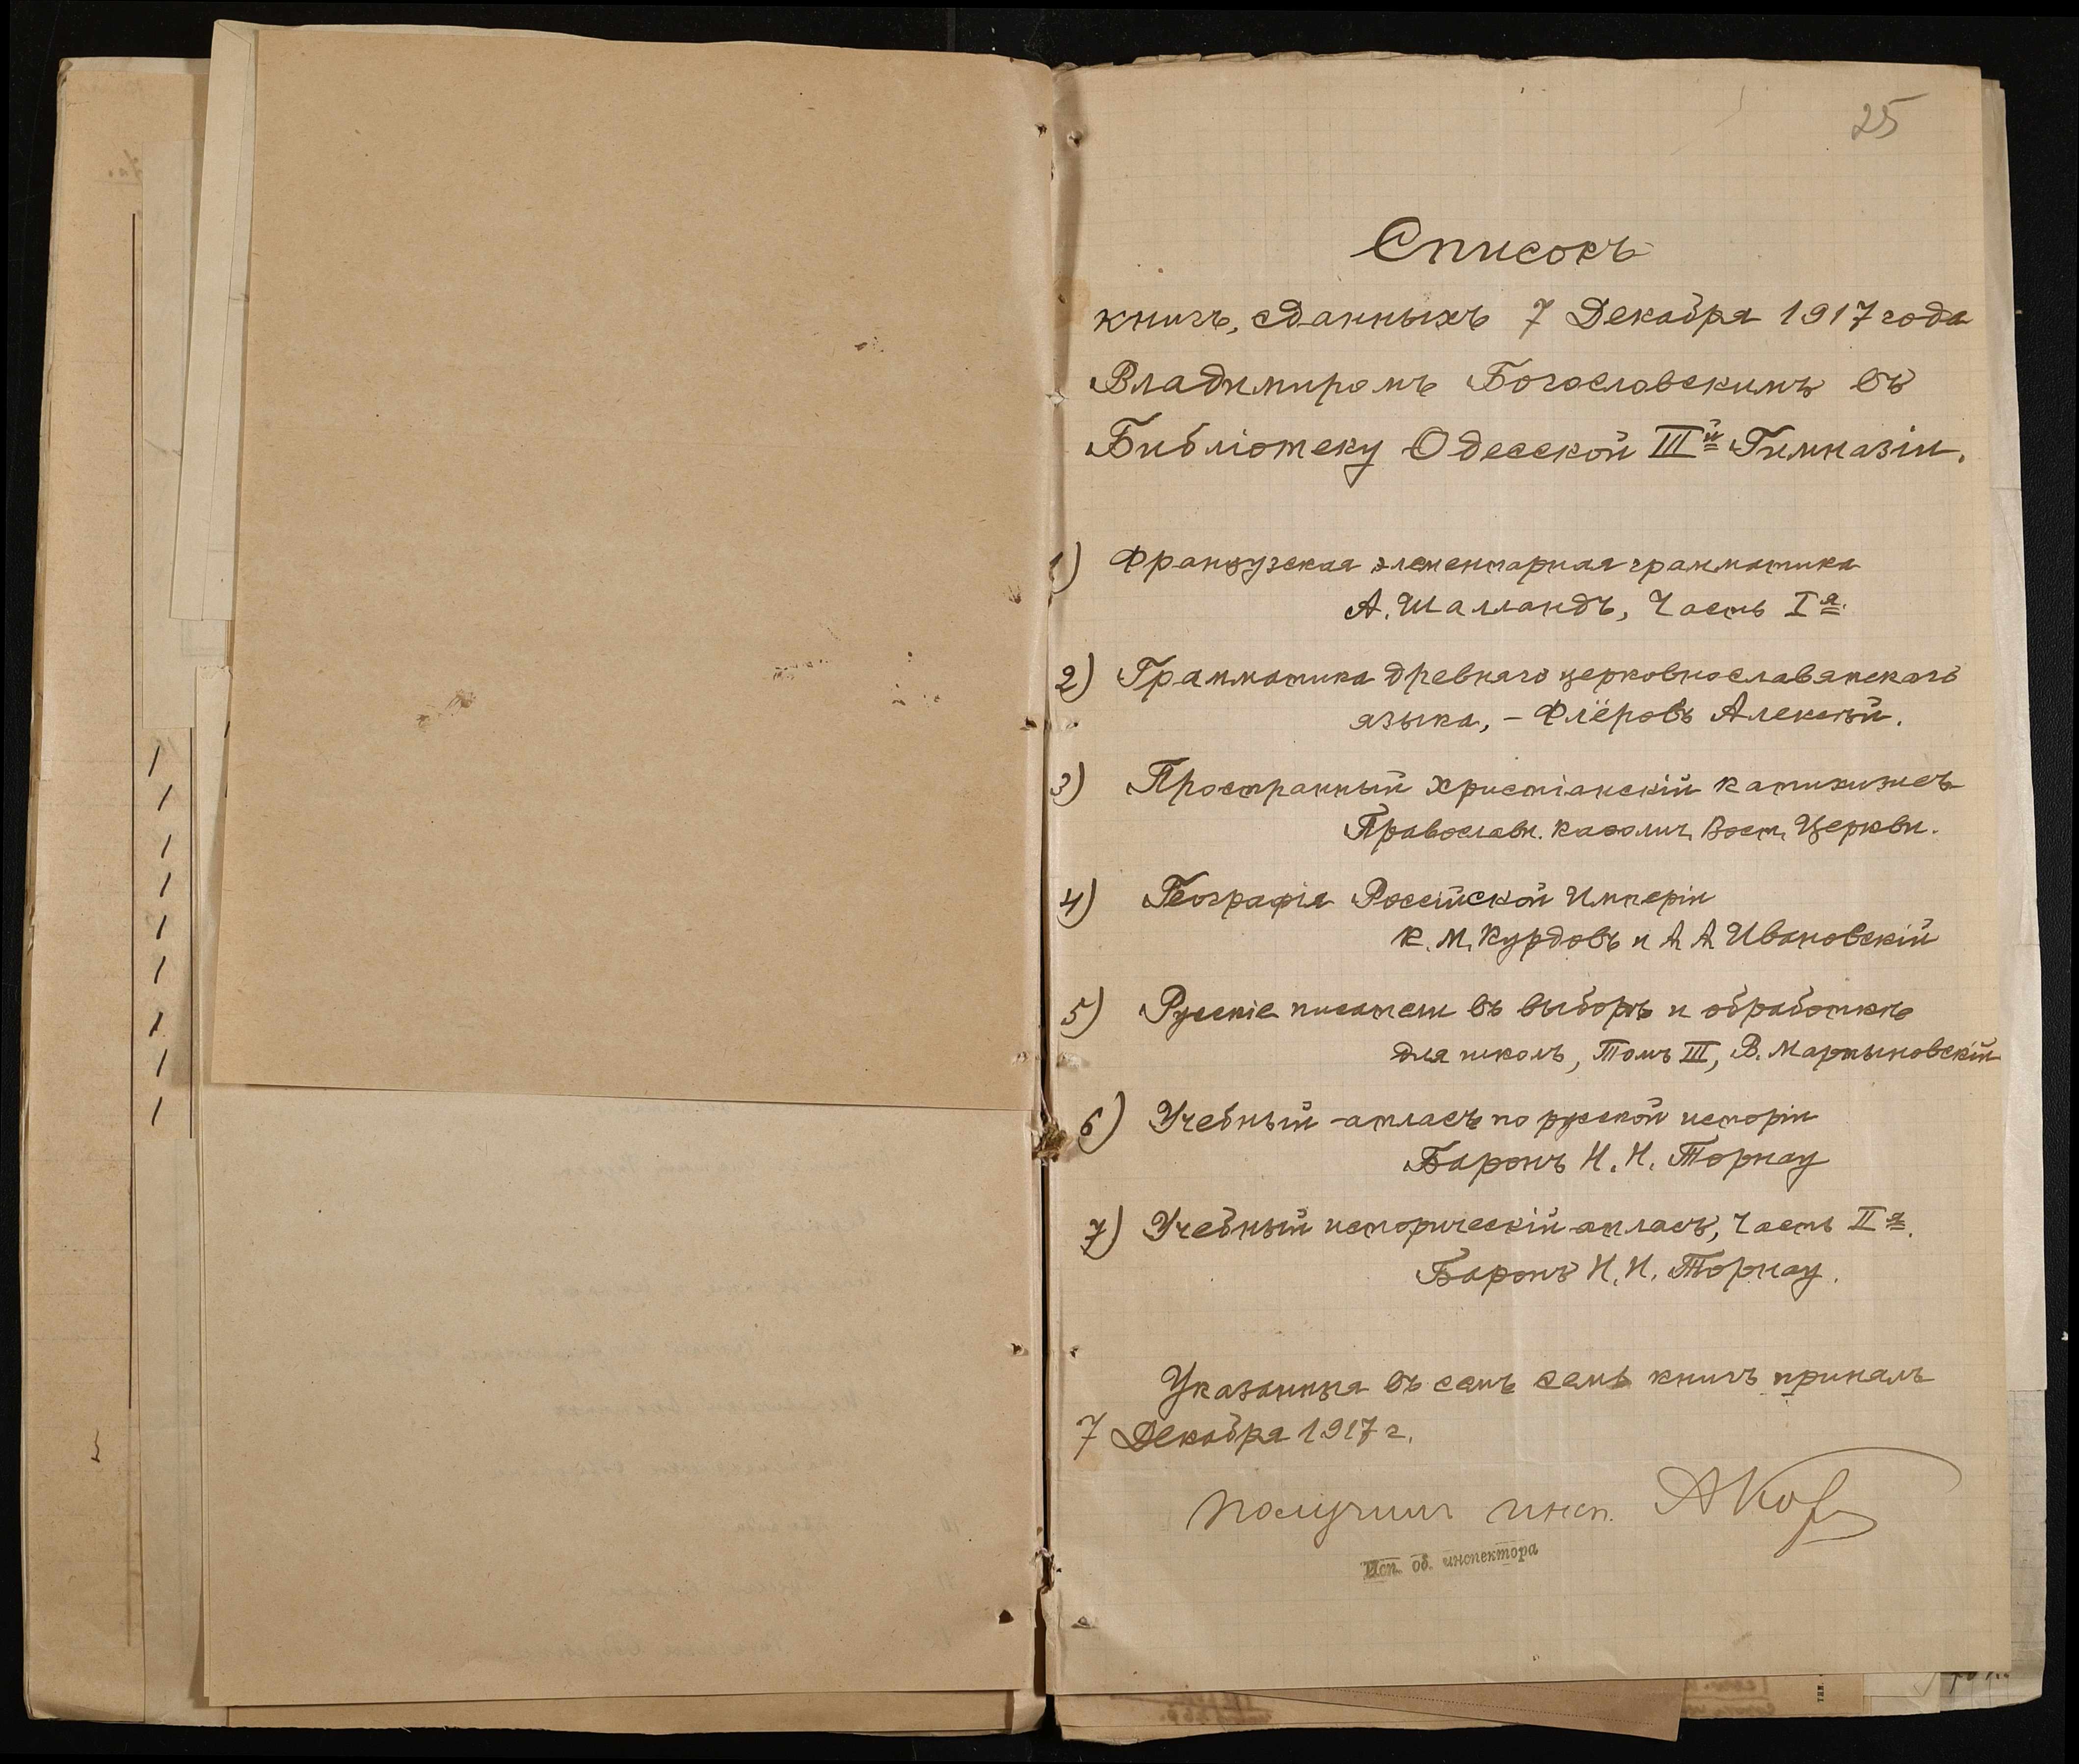 25
Списокъ
книгъ, сданныхъ 7 Декабря 1917 года
Владимиромъ Богословскимъ въ
Библіотеку Одесской III й Гимназіи.
1) Французская элементарная грамматика
А. Шалландъ, Часть I я.
2) Грамматика древняго церковнославянскаго
языка, – Флёровъ Алексѣй.
3) Пространный христіанскій катихизисъ
Православн. Каѳолич. Вост. Церкви.
4) Географія Россійской Имперіи
К. М. Курдовъ и А А Ивановскій
5) Русскіе писатели въ выборѣ и обработкѣ
для школъ, Томъ III, В. Мартыновскій
6) Учебный атласъ по русской исторіи
Баронъ Н. Н. Торнау
7) Учебный историческій атласъ, Часть II я.
Баронъ Н. Н. Торнау.
Указанныя въ семъ семь книгъ принялъ
7 Декабря 1917 г.
Получилъ инсп.
Исп. об. инспектора